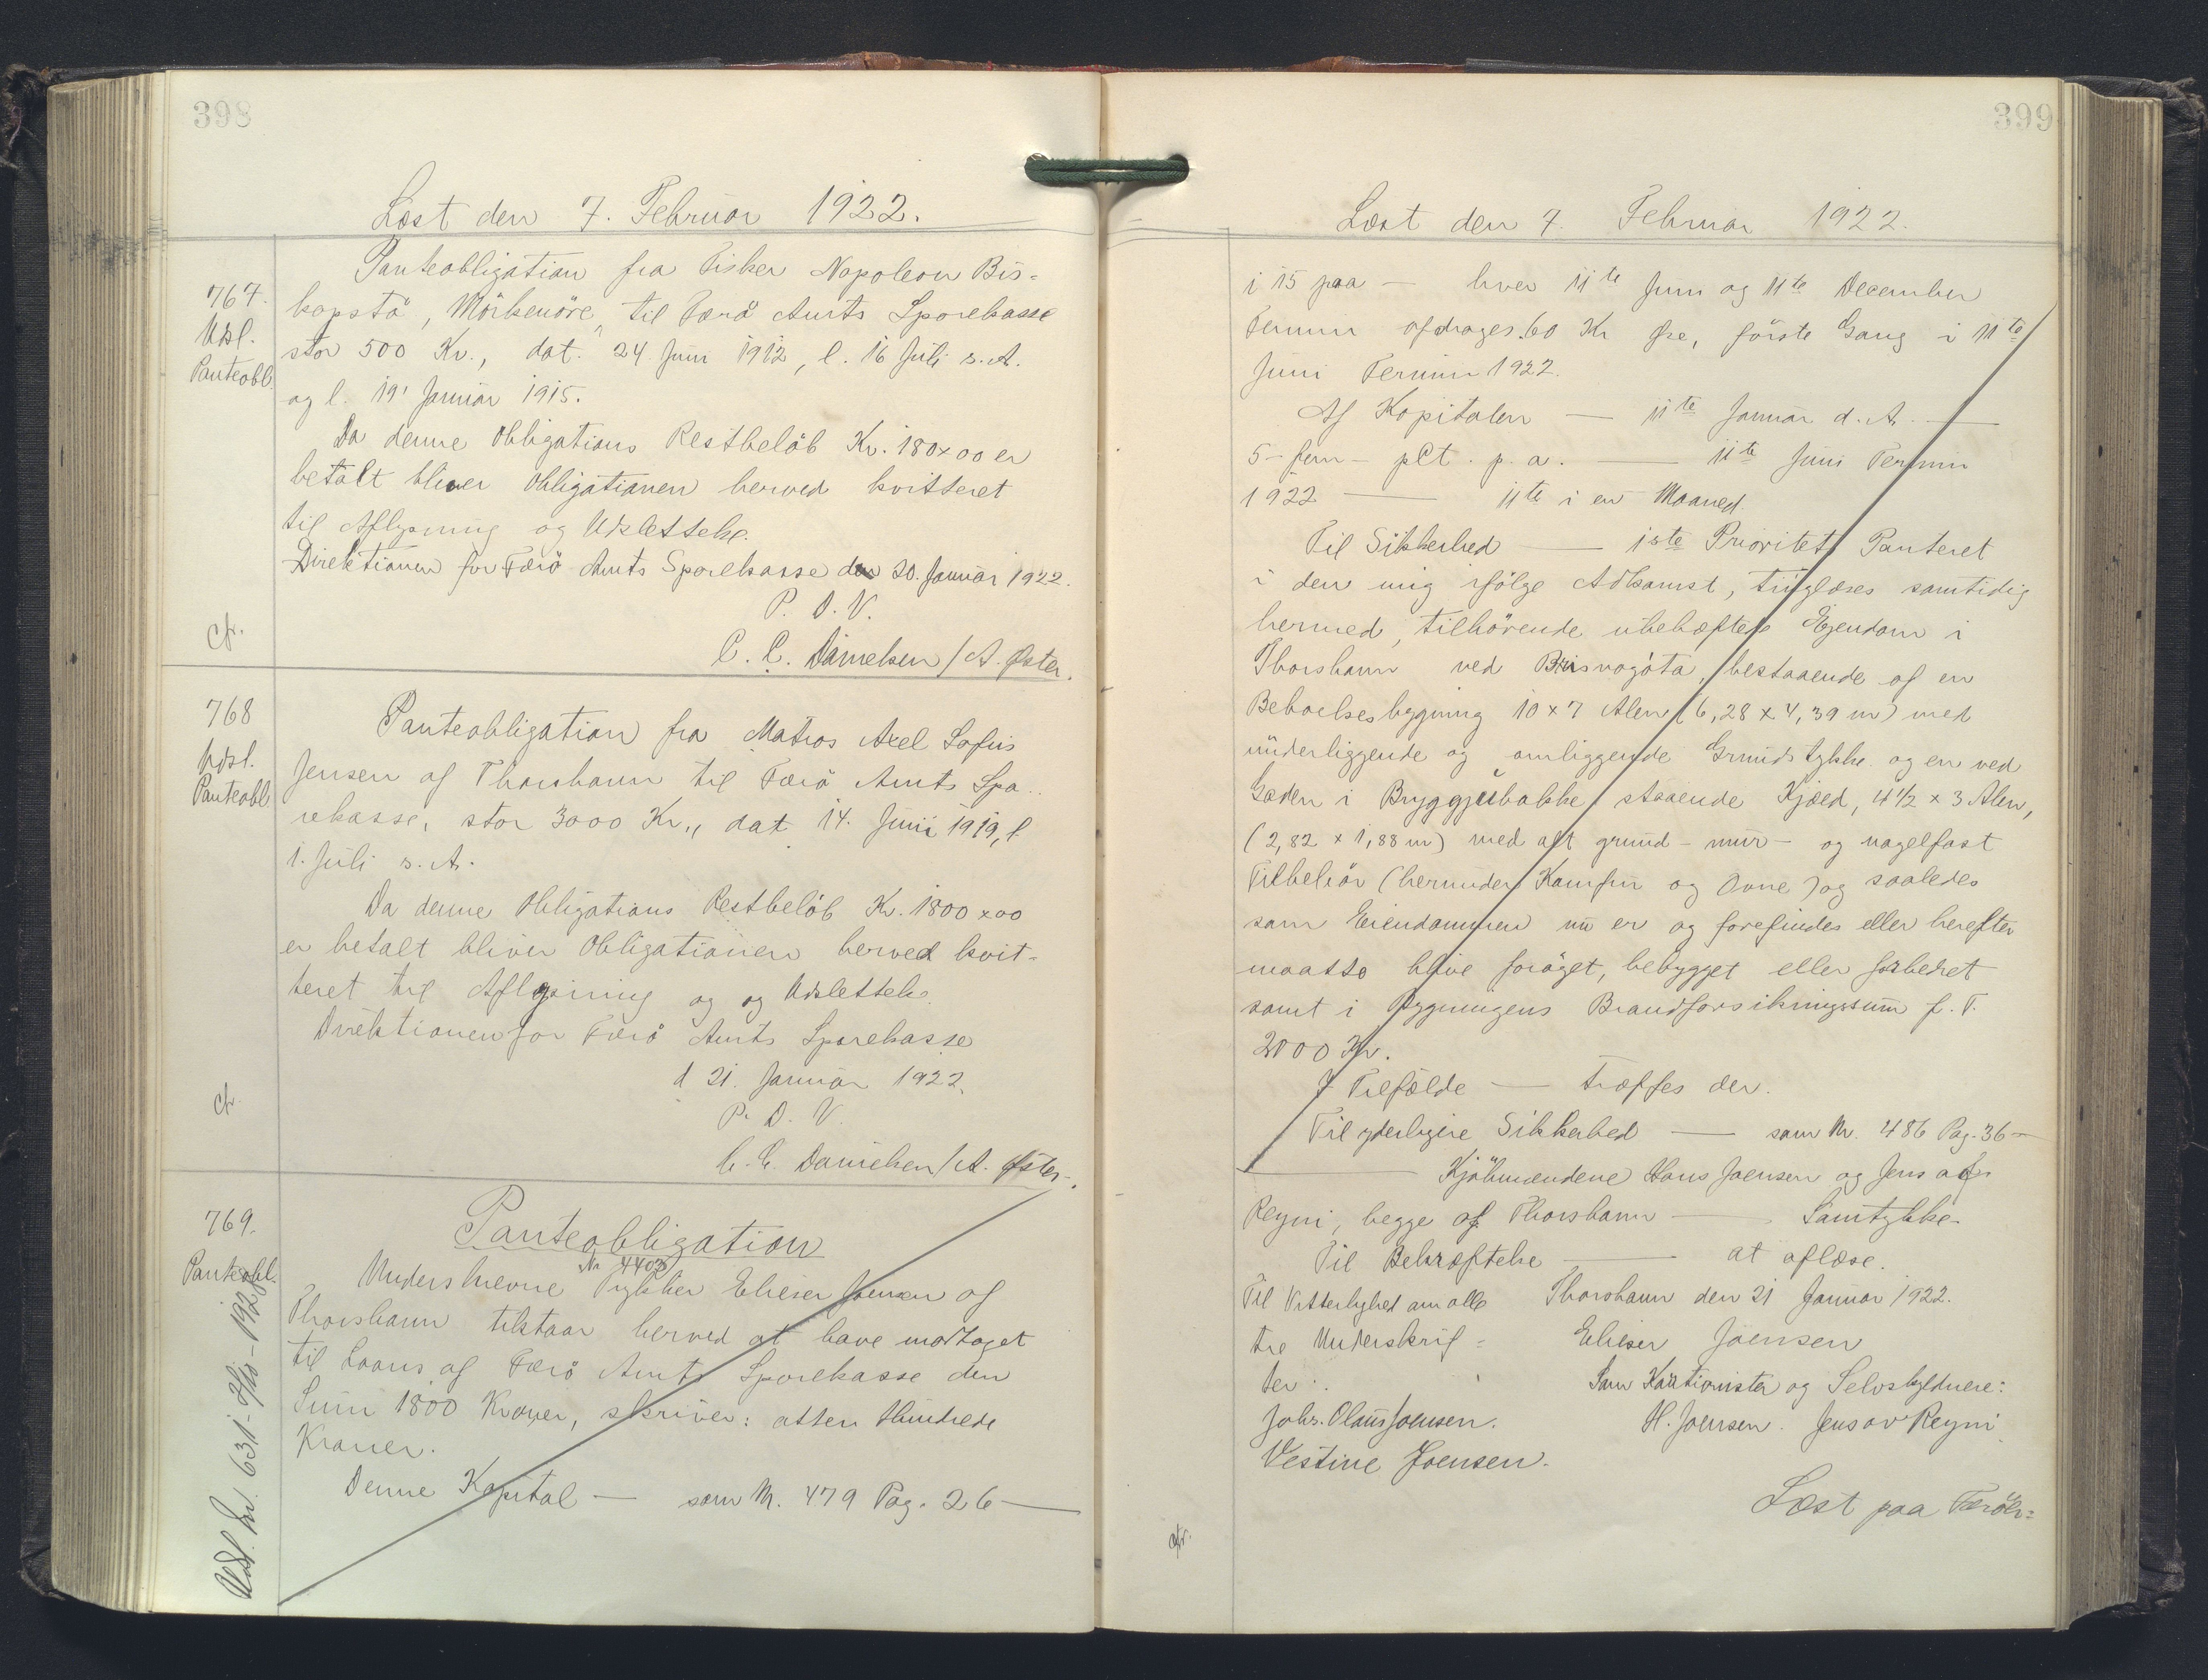 398
Læst den 7. Februar 1922.
767.
Udsl.
Panteobl.
Panteobligation fra Fisker Napoleon Bis-
kopstö, Mörkenöre, til Færö Amts Sparekasse
stor 500 Kr., dat. 24. Juni 1912, l. 16 Juli s. A.
og l. 19' Januar 1915.
Da denne Obligations Restbelöb Kr. 180x00 er
betalt bliver Obligationen herved kvitteret
til Aflysning og Udslettelse.
Direktionen for Færö Amts Sparekasse den 20. Januar 1922.
P. D. V.
C. C. Danielsen / A. Öster.
768
Udsl.
Panteobl
Panteobligation fra Matros Axel Sofus
Jensen af Thorshavn til Færö Amts Spa-
rekasse, stor 3000 Kr., dat 14. Juni 1919, l
1. Juli s. A.
Da denne Obligations Restbelöb Kr. 1800x00
er betalt bliver Obligationen herved kvit-
teret til Aflysning og og Udslettelse.
Direktionen for Færö Amts Sparekasse
d 21. Januar 1922.
P. D. V.
C. C. Danielsen / A. Öster.
769.
Panteobl.
Udsl. Nr. 631-
Panteobligation
No 4403
Underskrevne Trykker Elieser Joensen af
Thorshavn tilstaar herved at have modtaget
til Laans af Færö Amts Sparekasse den
Sum 1800 Kroner, skriver: atten Hundrede
Kroner.
Denne Kapital — som Nr. 479 Pag. 26 —
399
Læst den 7. Februar 1922.
i 15 paa — hver 11te Juni og 11te December
Termin afdrages 60 Kr fre, förste Gang i 11te
Juni Termin 1922.
Af Kapitalen — 11te Januar d. A. —
5 - fem - pCt. p. a. — 11te Juni Termin
1922 — 11te i en Maaned.
Til Sikkerhed — 1ste Prioritets Panteret
i den mig ifölge Adkomst, tinglæses samtidig
hermed, tilhörende ubehæftede Ejendom i
Thorshavn ved Brisvogöta, bestaaende af en
Beboelsesbygning 10 x 7 Alen (6,28 x 4,39 m) med
underliggende og omliggende Grundstykke og en ved
Gaden i Bryggjubakke staaende Kjæld, 4 1/2 x 3 Alen,
(2,82 x 1,88 m) med alt grund- mur- og nagelfast
Tilbehör (herunder Komfur og Ovne) og saaledes
som Eiendommen nu er og forefindes eller herefter
maatte blive foröget, bebygget eller forbedret
samt i Bygningens Brandforsikringssum f. T.
2000 Kr.
I Tilfælde — træffes der.
Til yderligere Sikkerhed — som Nr. 486 Pag. 36 —
— Kjöbmændene Hans Joensen og Jens af
Reyni, begge af Thorshavn — Samtykke.
Til Bekræftelse — at aflæse.
Til Vitterlighed om alle
tre Underskrif-
ter:
Johs. Olaus Joensen.
Vestine Joensen.
Thorshavn den 21 Januar 1922.
Elieser Joensen
Som Kautionister og Selvskyldnere:
H. Joensen. Jens av Reyni
Læst paa Færöer=